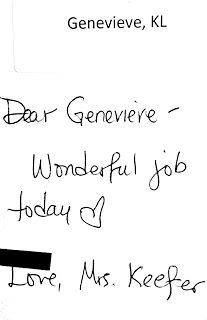 Genevieve, KL
Dear Genevière -
Wonderful job
today ♡
Love, Mrs. Keefer